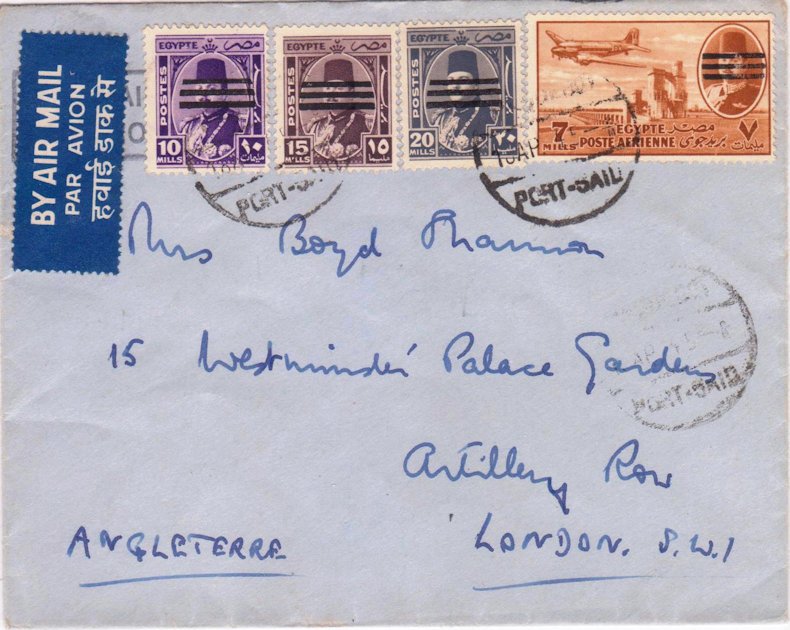 BY AIR MAIL
PAR AVION
हवाई डाक से
EGYPTE مصر
POSTES
10 MILLS ١٠ مليمات
EGYPTE مصر
POSTES
15 MILLS ١٥ مليما
EGYPTE مصر
POSTES
20 MILLS ٢٠ مليما
7 MILLS EGYPTE مصر ٧ مليمات
POSTE AÉRIENNE بريد جوى
PORT-SAID
AP
PORT-SAID
PORT-SAID
Mrs Boyd Shannon
15 Westminster Palace Gardens
Artillery Row
LONDON. S.W.1
ANGLETERRE